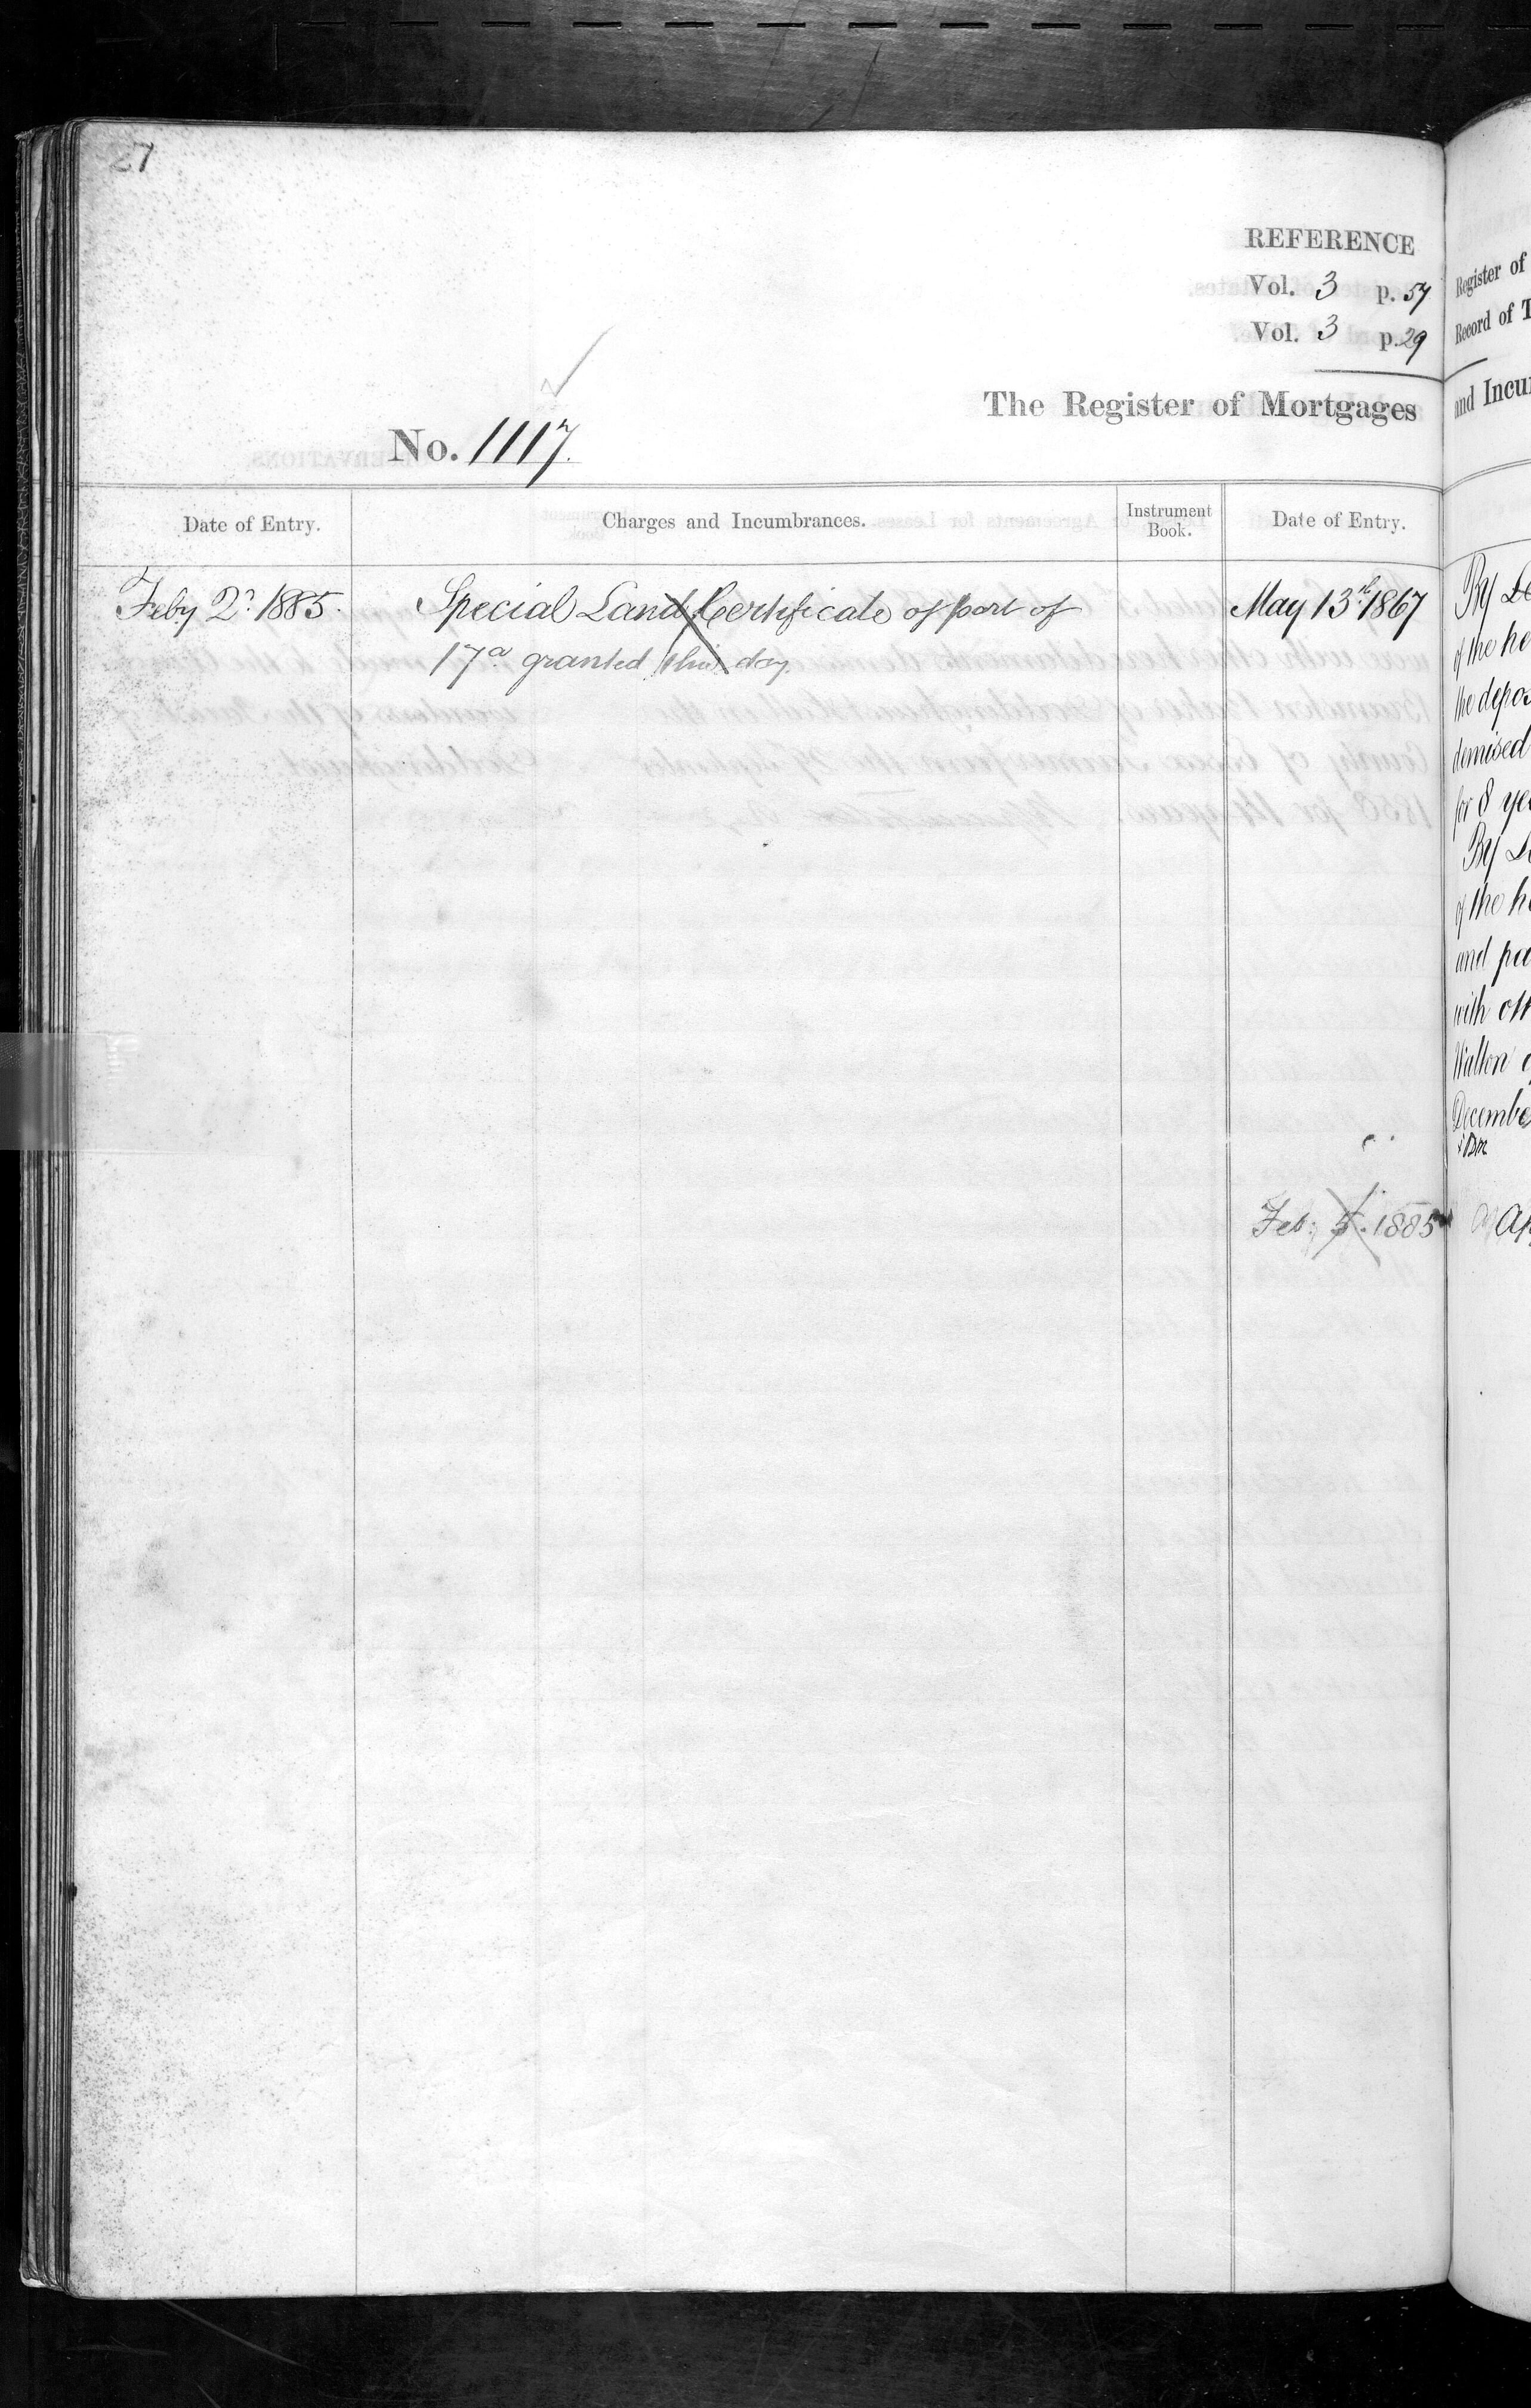 27
REFERENCE
Vol. 3 p. 57
Vol. 3 p. 29
The Register of Mortgages
No. 1117.
Date of Entry. Charges and Incumbrances. Instrument Book. Date of Entry.
Feby 2d. 1885. Special Land Certificate of part of May 13th. 1867
17a granted this day.
Feb: 5. 1885
Register of
Record of T
and Incu
By Le
of the he
the depos
demised
for 8 yea
By Le
of the he
and pa
with oth
Walton
December